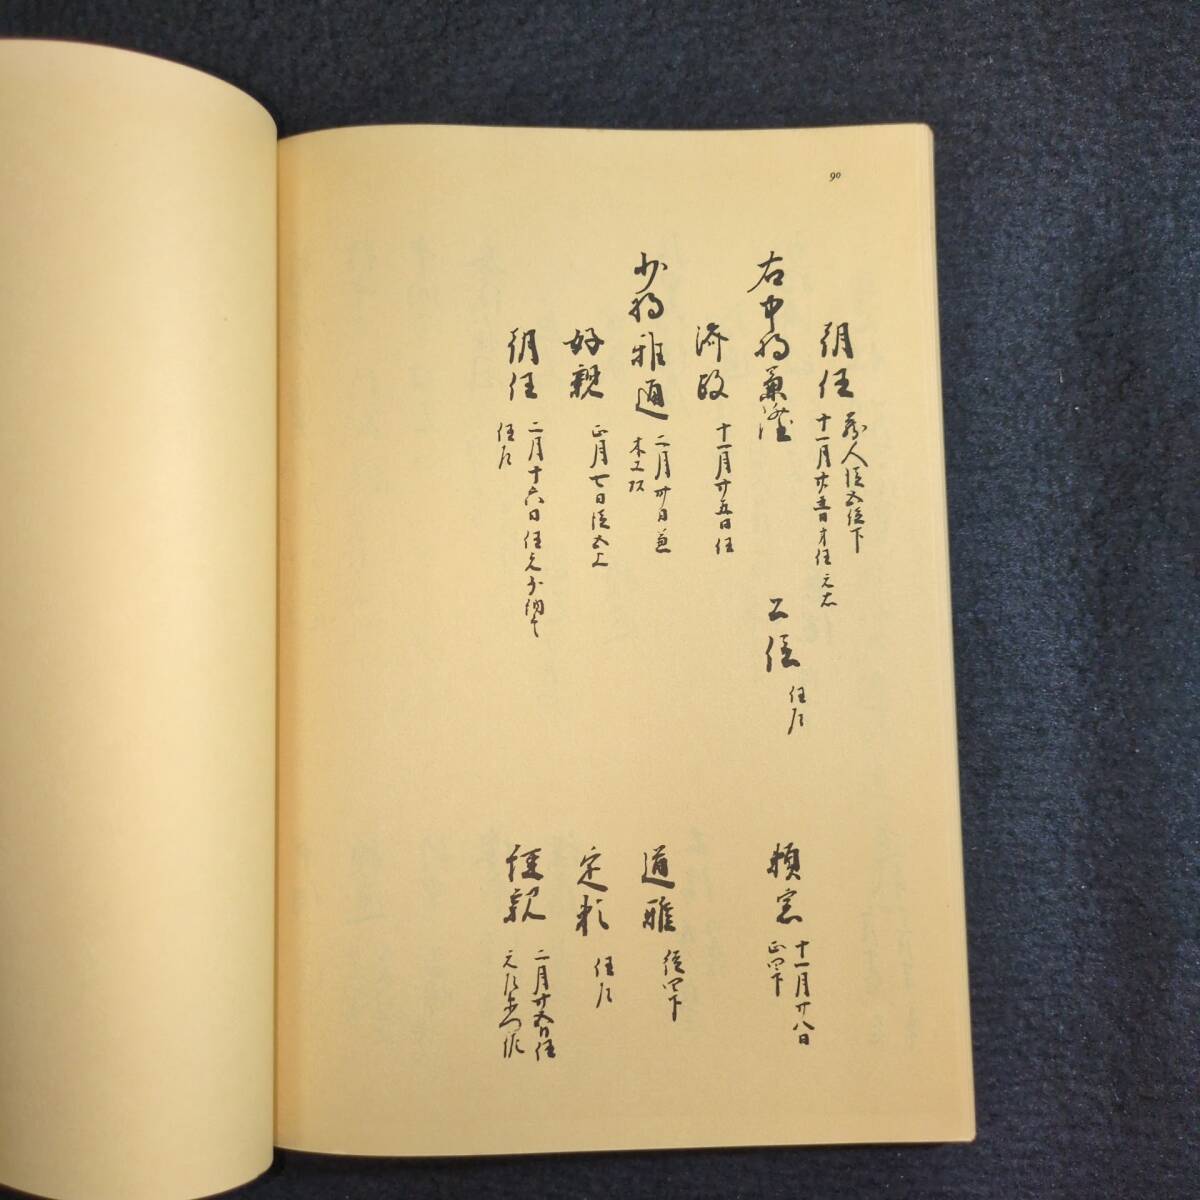 90
朝任 蔵人従五位下
十一月廿五日才任 元右
右中将兼隆 公信 任左 頼宗 十一月廿八日
正四下
済政 十一月廿五日任
少将雅通 二月卅日兼 道雅 従四下
木工頭
好親 正月七日従五上 定頼 任左
朝任 二月十六日任元少納言 経親 二月廿五日任
任左 元左衛門佐